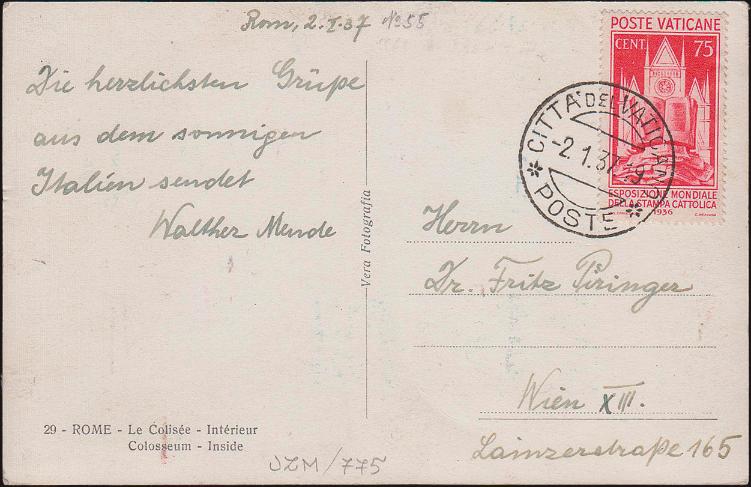 Rom, 2. I. 37 No 55
Die herzlichsten Grüße
aus dem sonnigen
Italien sendet
Walther Mende
Vera Fotografia
POSTE VATICANE
CENT. 75
ESPOSIZIONE MONDIALE
DELLA STAMPA CATTOLICA
1936
CITTÀ DEL VATICANO
-2.1.37.19
POSTE
Herrn
Dr. Fritz Piringer
Wien XIII.
Lainzerstraße 165
29 - ROME - Le Colisée - Intérieur
Colosseum - Inside
JZM/775